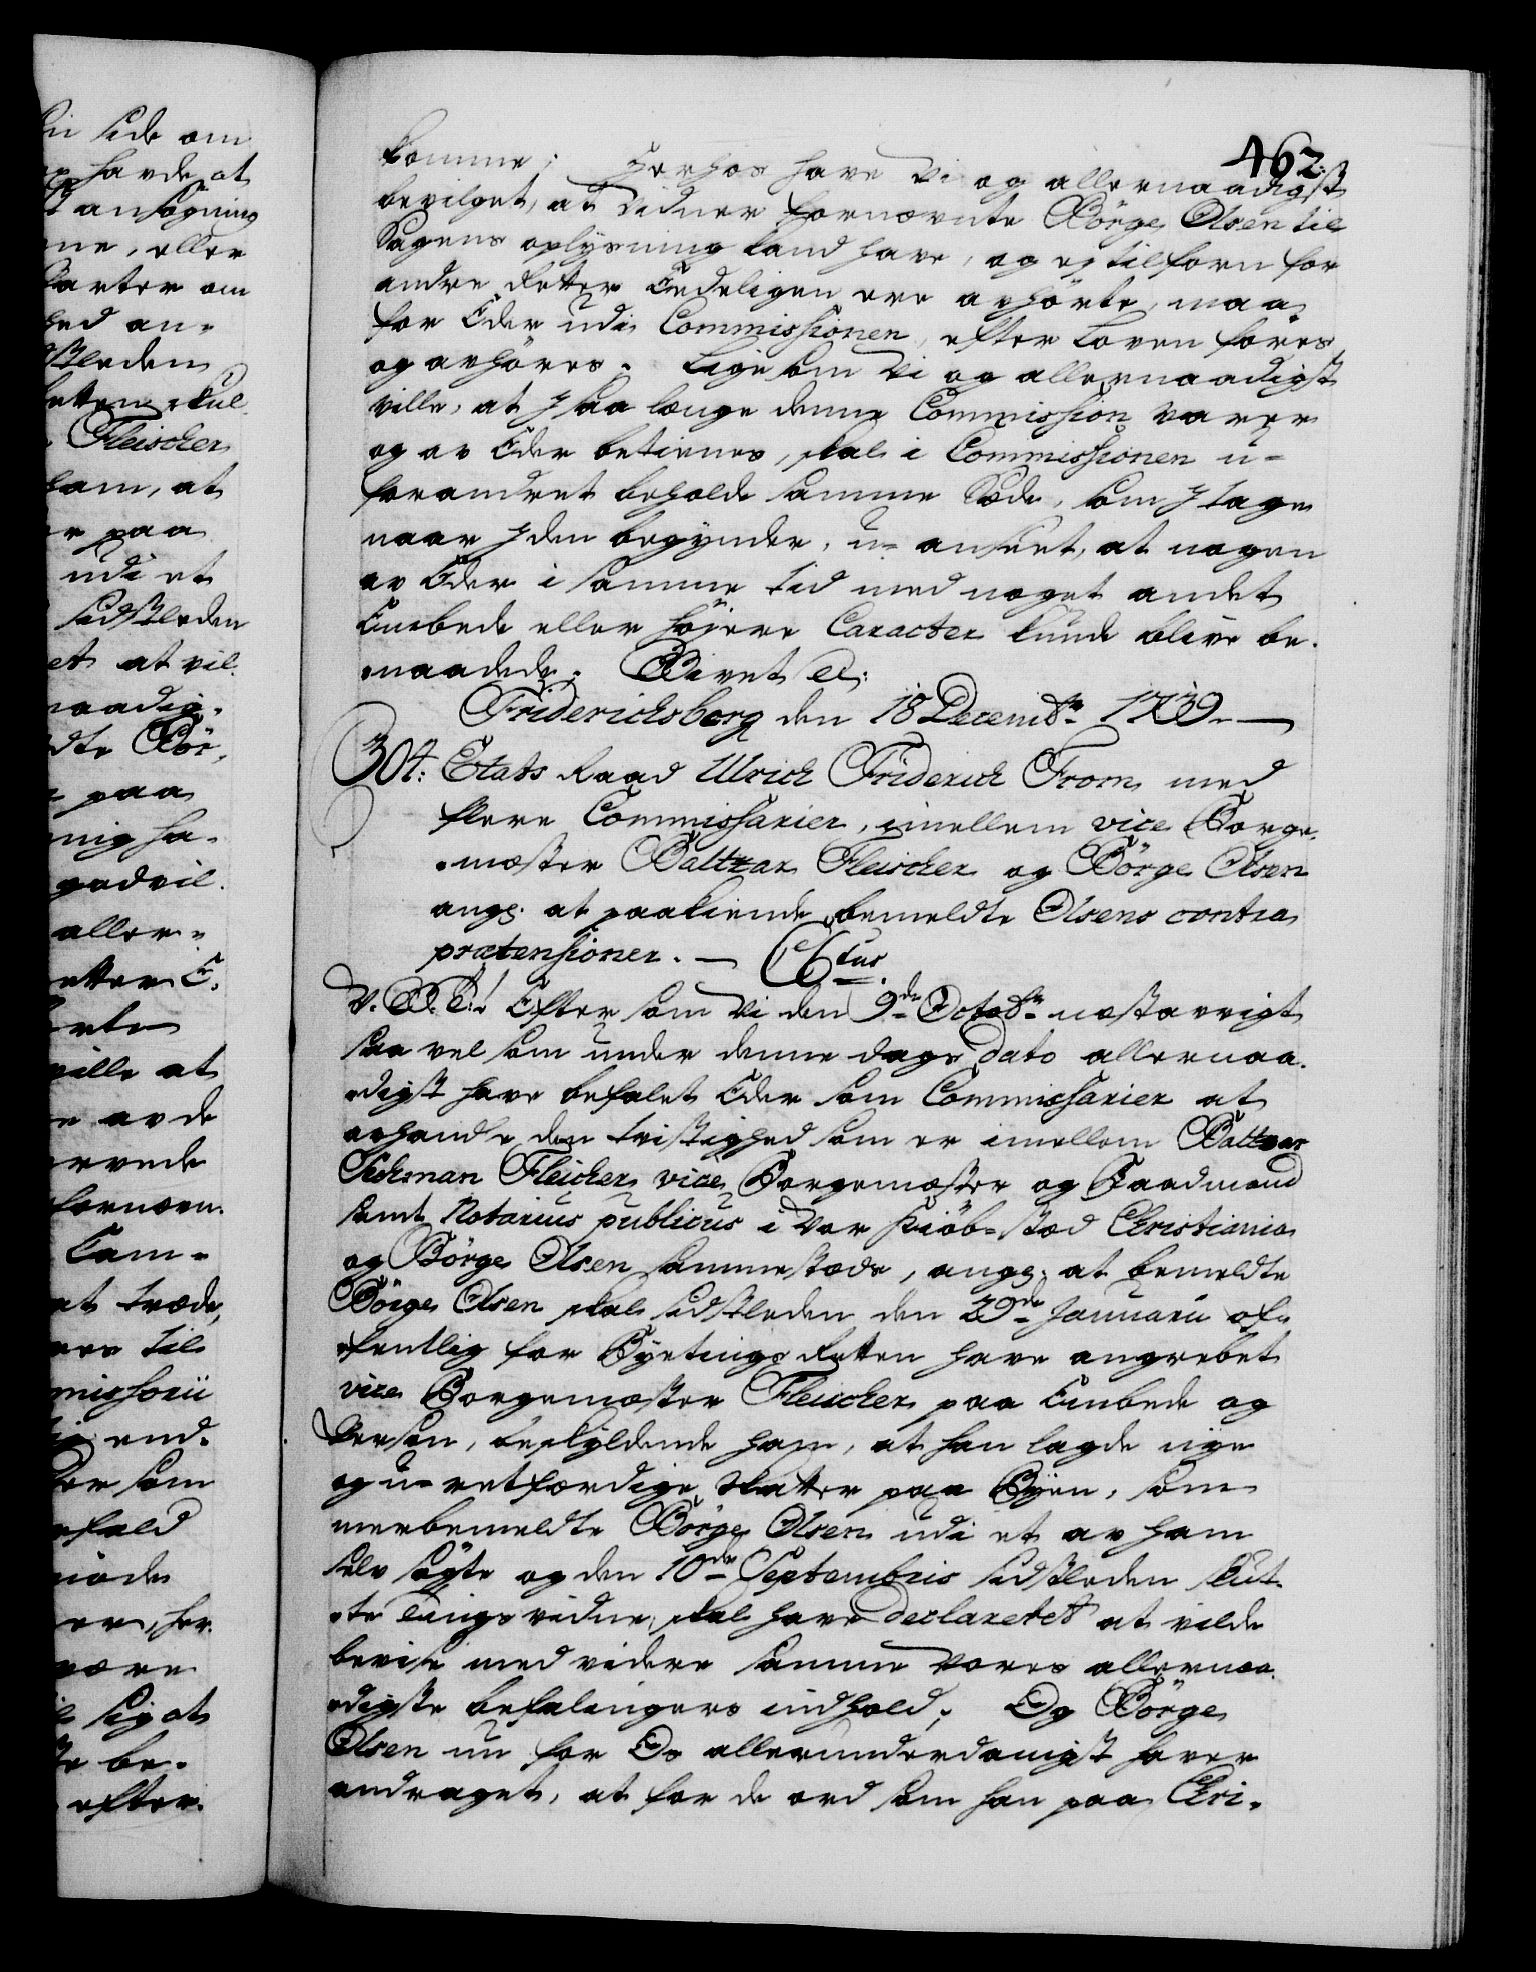 462.
komme; Herhos have Vi og allernaadigst
bevilget, at Vidner fornævnte Börge Olsen til
Sagens oplysning kand have, og ey tilforn for
andre Retter Eedeligen ere avhörte, maa
for Eder udi Commissionen, efter Loven föres
og avhöres. Ligesom Vi og allernaadigst
ville, at I saa længe denne Commission varer
og av Eder betienes, skal i Commissionen u-
forandret beholde samme Sæde, som I tage
naar I den begynder, u-anseet, at nogen
av Eder i samme tid med noget andet
Embede eller höjere Caracter kunde blive be-
naadede. Givet etc:
Friderichsborg den 18 Decembr 1739.
304: Etats Raad Ulrich Friderich From med
flere Commissarier, imellem vice Borge-
mæster Baltzar Fleischer og Börge Olsen
ang: at paakiende bemeldte Olsens contra
prætensioner. — C6tus
V. G. T.! Eftersom Vi den 9de Octobr næstavvigt
saavelsom under denne dags dato allernaa-
digst have befalet Eder som Commissarier at
avhandle den tvistighed som er imellem Baltzar
Sechman Fleicher, vice Borgemæster og Raadmand
samt Notarius publicus i Vor Kiöb-stæd Christiania
og Börge Olsen sammestæds, ang: at bemeldte
Börge Olsen skal sidstleden den 29de Januarii of-
fentlig for Byetings Retten have angrebet
vice Borgemæster Fleischer paa Embede og
Person, beskyldende ham, at han lagde nye
og u-retfærdige Skatter paa Byen, som
meerbemeldte Börge Olsen udi et av ham
selv søgte og den 10de Septembris sidstleden slut-
te tings vidne, skal have declareret at vilde
bevise med videre samme Vores allernaa-
digste befalingers indhold; Og Börge
Olsen nu for Os allerunderdanigst haver
andraget, at for de ord som han paa Chri-